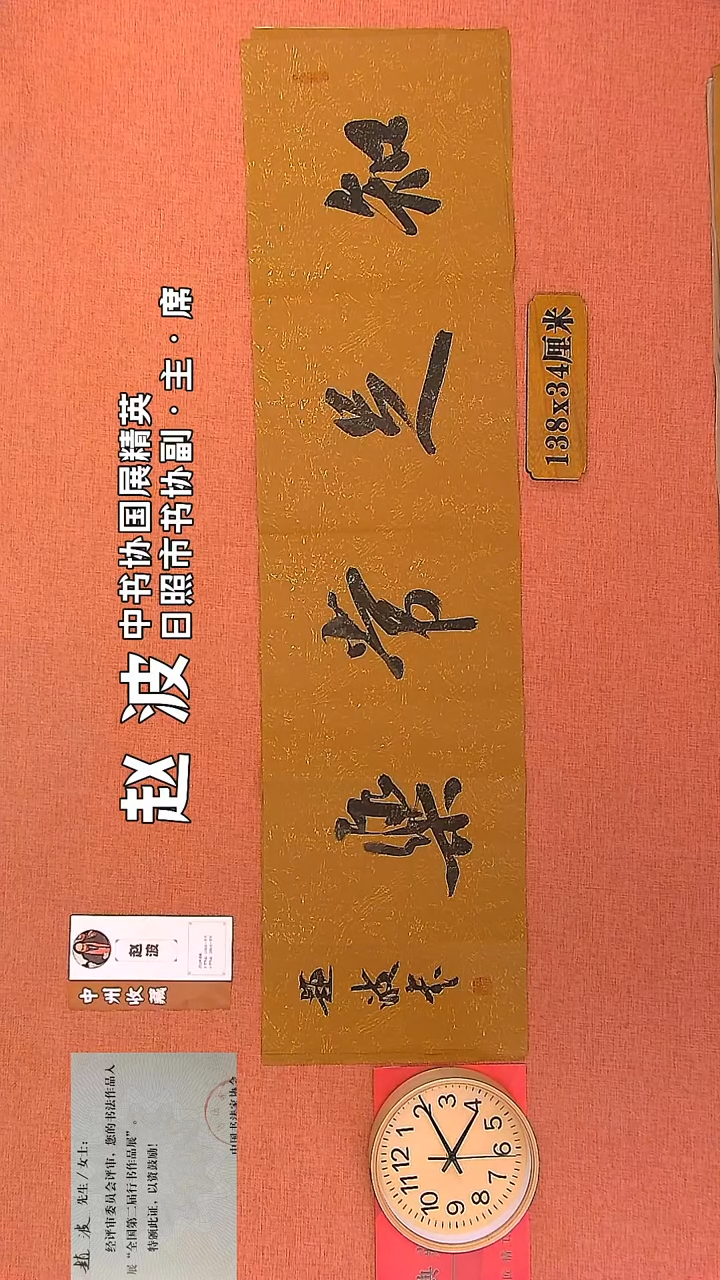 赵 波
中书协国展精英
日照市书协副·主·席
知足常樂
趙波书
138x34厘米
赵波
中州收藏
趙 波 先生/女士：
经评审委员会评审，您的书法作品入
展“全国第二届行书作品展”。
特颁此证，以资鼓励！
中国书法家协会
12
1
2
3
4
5
6
7
8
9
10
11